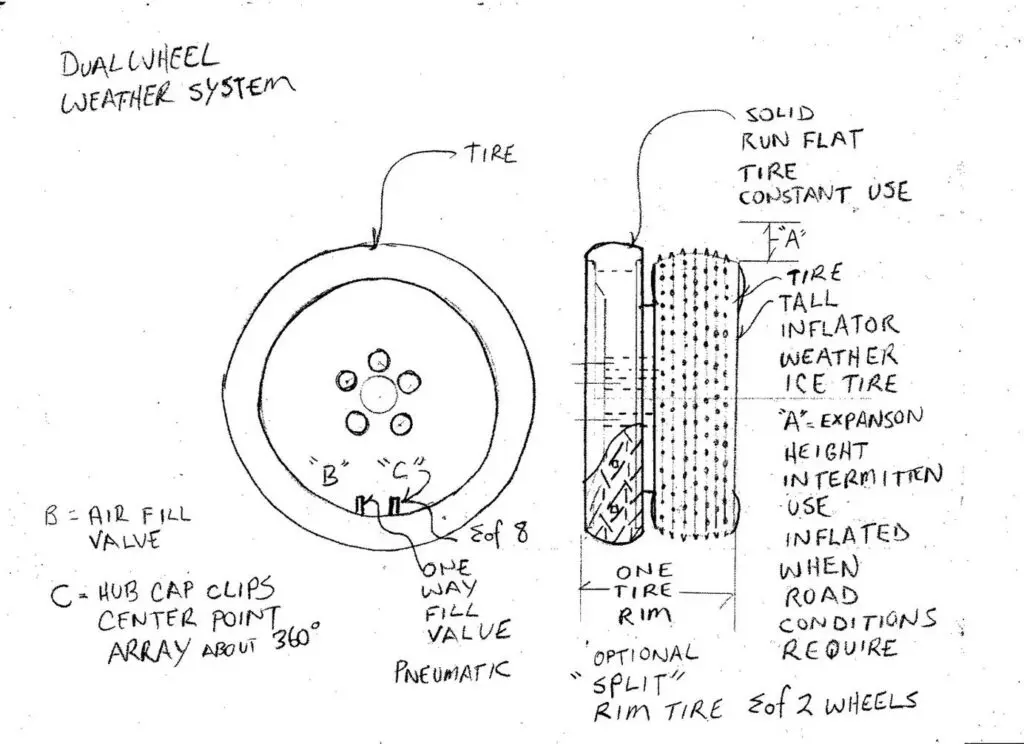 DUAL WHEEL
WEATHER SYSTEM
TIRE
SOLID
RUN FLAT
TIRE
CONSTANT USE
"A"
TIRE
TALL
INFLATOR
WEATHER
ICE TIRE
"A" = EXPANSON
HEIGHT
INTERMITTEN
USE
INFLATED
WHEN
ROAD
CONDITIONS
REQUIRE
"B" "C"
B = AIR FILL
VALVE
C = HUB CAP CLIPS
CENTER POINT
ARRAY ABOUT 360°
Σ of 8
ONE
WAY
FILL
VALUE
PNEUMATIC
ONE
TIRE
RIM
OPTIONAL
"SPLIT"
RIM TIRE Σ of 2 WHEELS